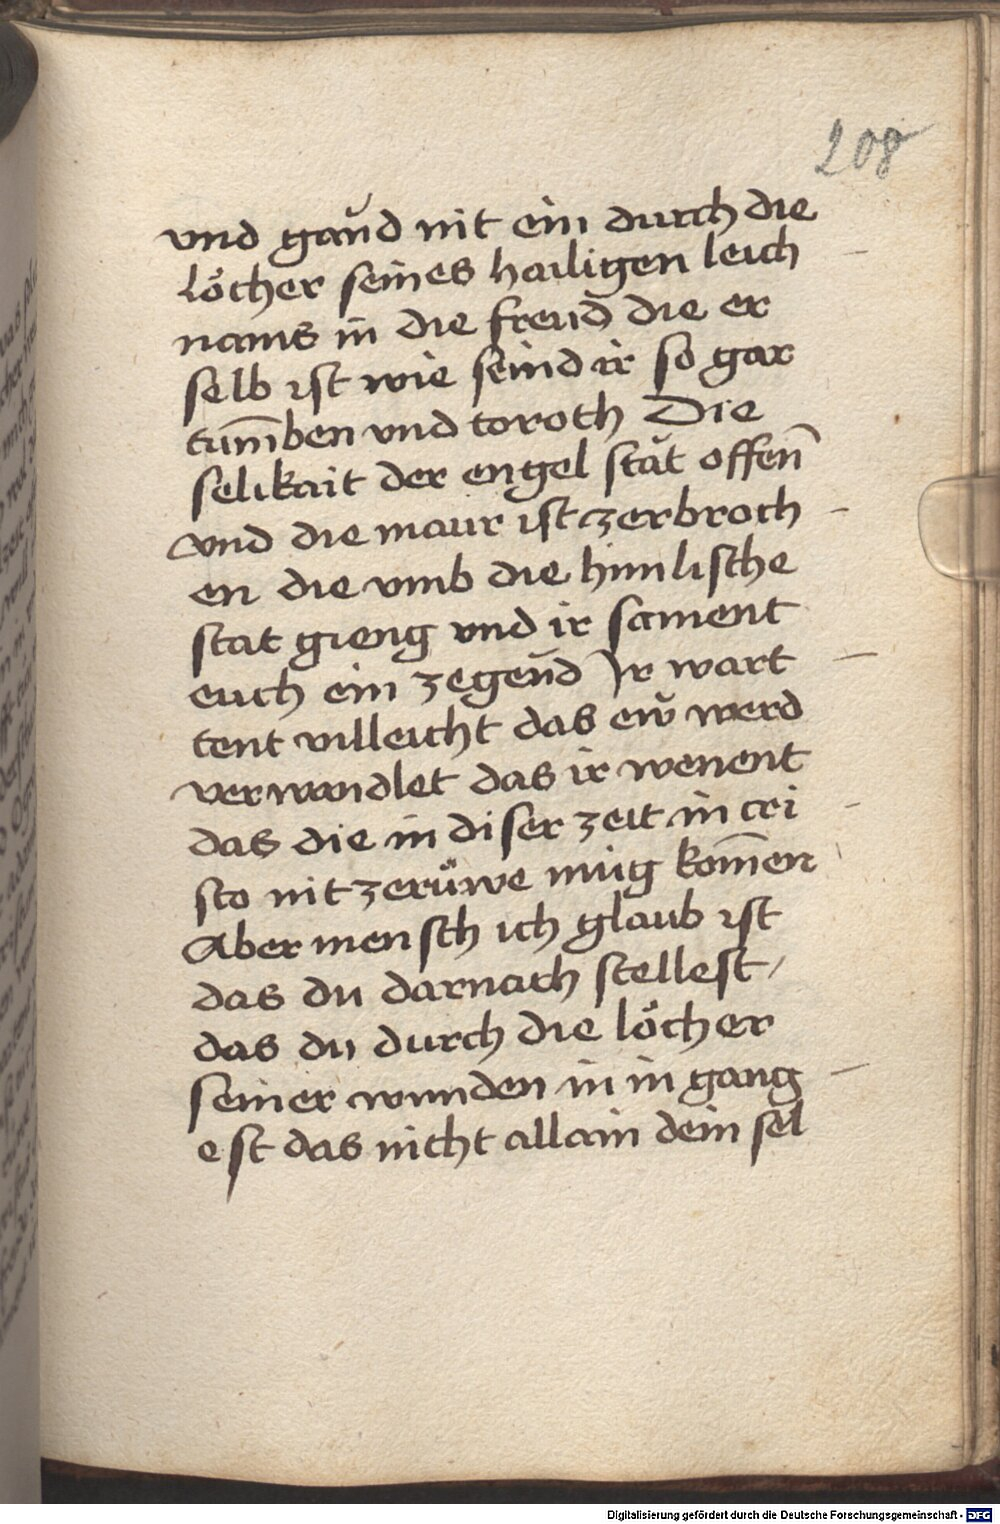 208
vnd gaŭd nit ein durch die
löcher seines hailigen leich
nams in die freud̄ die er
selb ist wie seind ir so gar
tum̄ben vnd toroth Die
selikait der engel stăt offen̄
vnd die maur ist zerbroch
en die vmb die himlische
stat gieng vnd ir sament
euch ein zegeŭd Ir wart
tent villeicht das ew̆ werd
verwandlet das ir wenent
das die in diser zeit in cri
sto nit zerüwe mug kom̄en
Aber mensch ich glaub ist
das du darnach stellest /
das du durch die löcher
seiner wunden in in gang
est das nicht allain dein sel
Digitalisierung gefördert durch die Deutsche Forschungsgemeinschaft - DFG